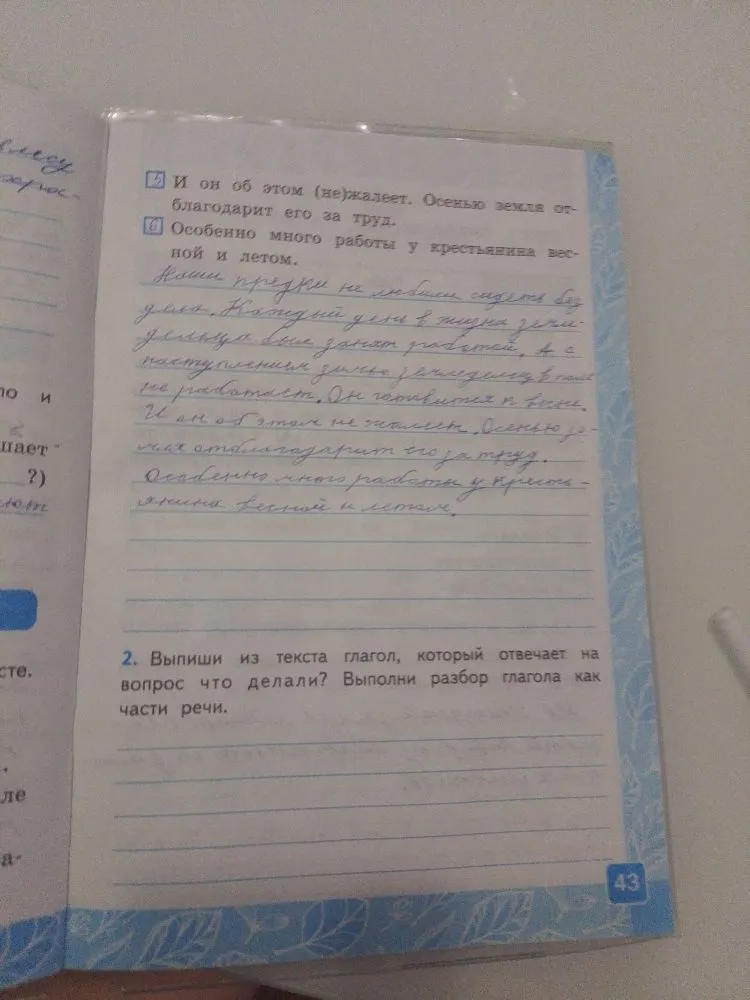 в лесу
5 И он об этом (не)жалеет. Осенью земля от-
благодарит его за труд.
6 Особенно много работы у крестьянина вес-
ной и летом.
Наши предки не любили сидеть без
дела. Каждый день в жизна земле-
дельца был занят работой. А с
наступлением зимы земледелец в поле
не работает. Он готовится к весне.
И он об этом не жалеет. Осенью зе-
мля отблагодарит его за труд.
Особенно много работы у кресть-
янина весной и летом.
о и
шает
?)
ют
2. Выпиши из текста глагол, который отвечает на
вопрос что делали? Выполни разбор глагола как
части речи.
сте.
ле
а-
43